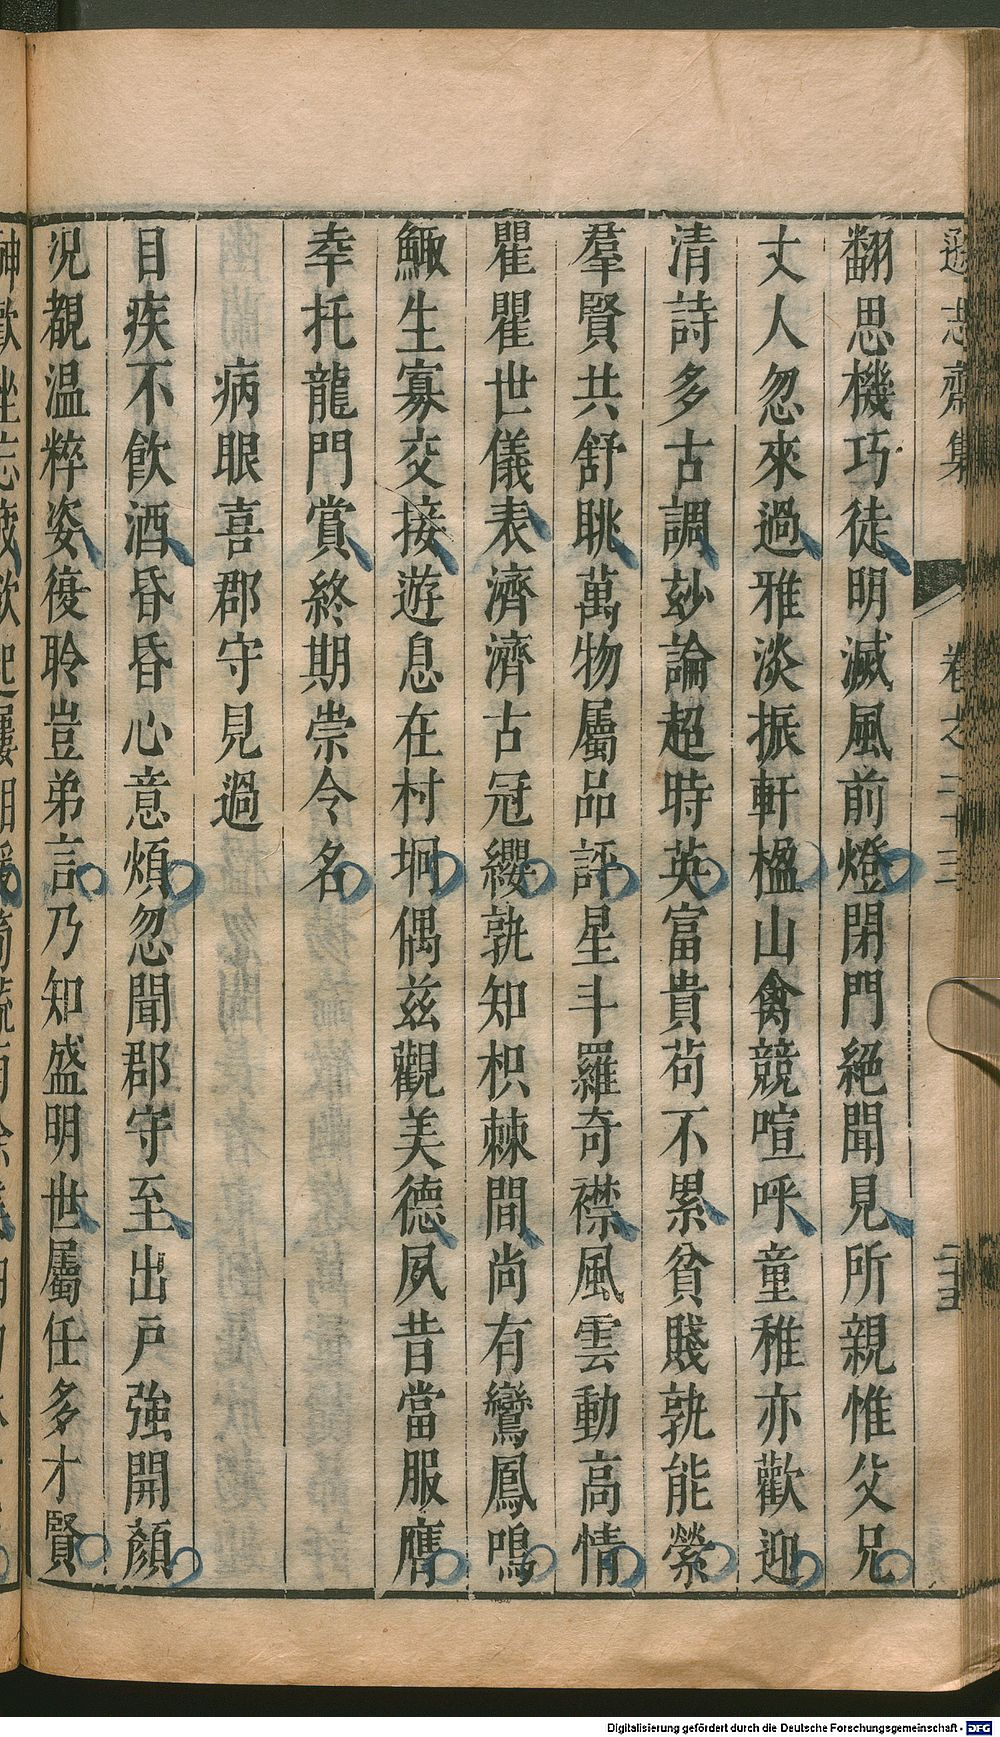 遜志齋集 卷之二十三 二十五
翻思機巧徒明滅風前燈閉門絕聞見所親惟父兄
丈人忽來過雅淡振軒楹山禽競喧呼童稚亦歡迎
清詩多古調玅論超時英富貴苟不累貧賤孰能縈
羣賢共舒眺萬物屬品評星斗羅奇襟風雲動高情
瞿瞿世儀表濟濟古冠纓孰知枳棘間尚有鸞鳳鳴
鯫生寡交接遊息在村坰偶茲觀美德夙昔當服膺
幸托龍門賞終期崇令名
病眼喜郡守見過
目疾不飲酒昏昏心意煩忽聞郡守至出戶強開顏
況覩温粹姿復聆豈弟言乃知盛明世屬任多才賢
Digitalisierung gefördert durch die Deutsche Forschungsgemeinschaft - DFG